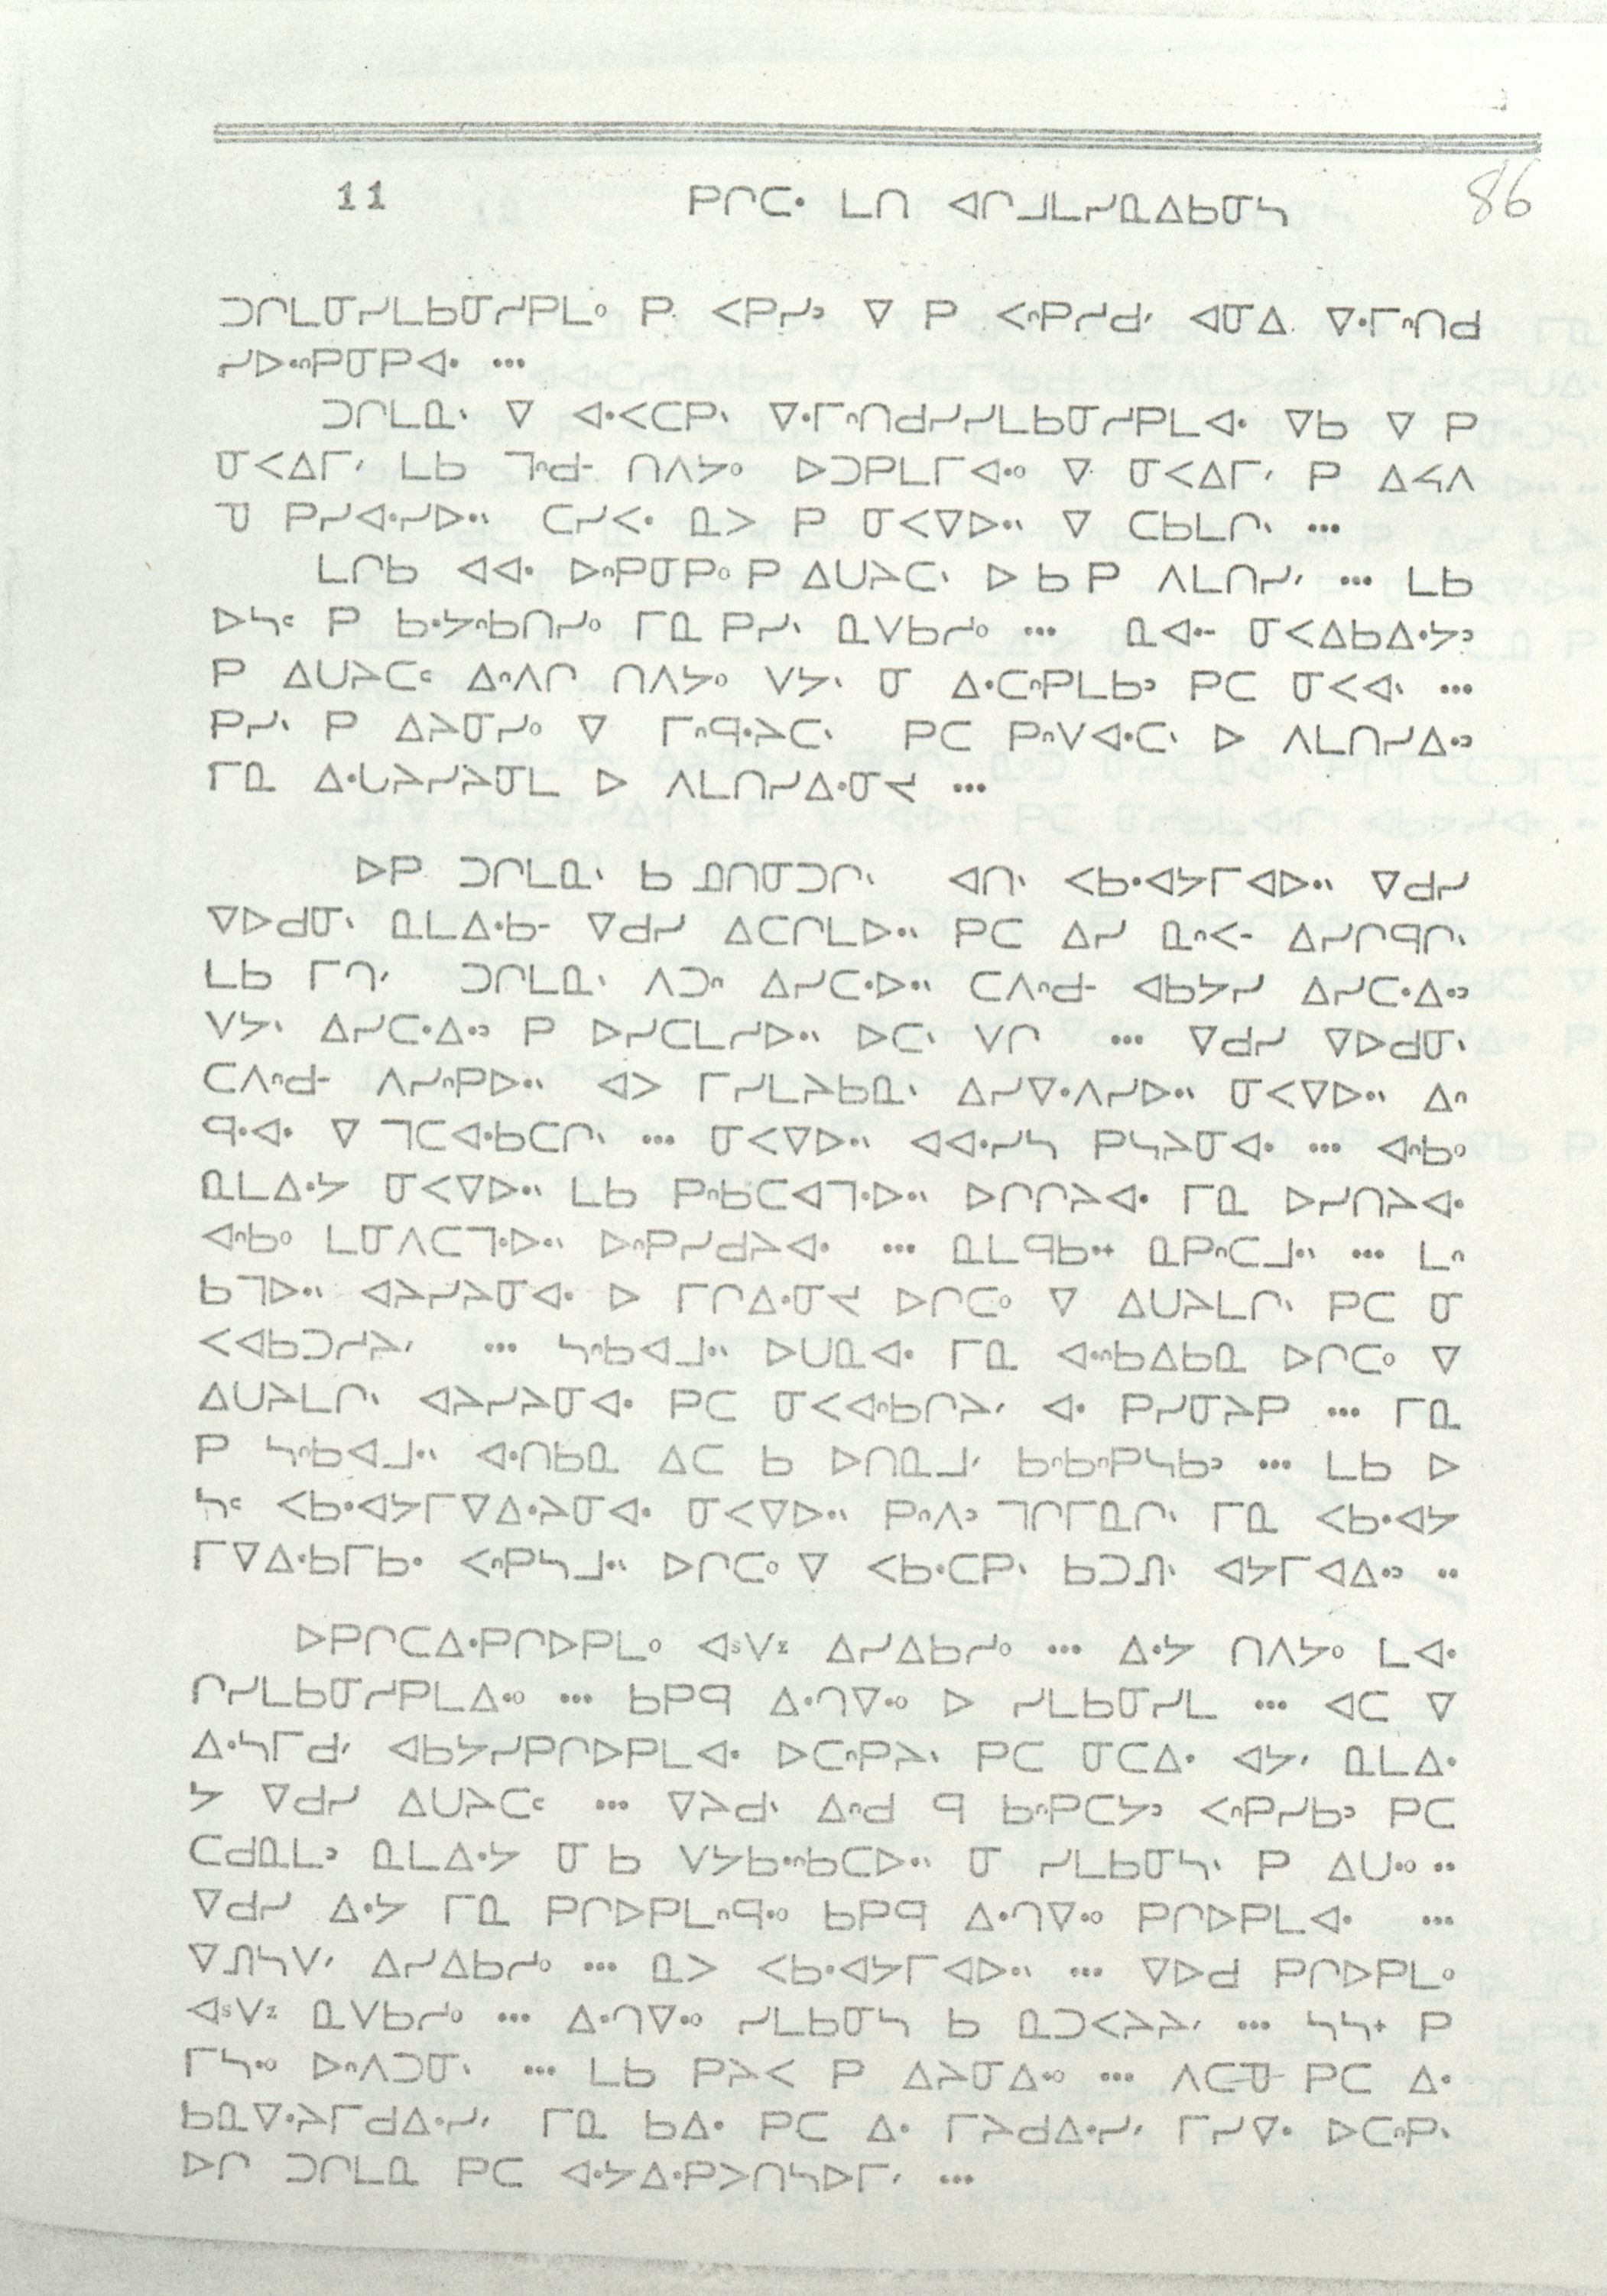 11 ᑭᒋᑕᐧ ᒪᑎ ᐊᒋᒧᒪᓯᓇᐃᑲᓂᓴ 86
ᑐᒋᒪᓂᓯᒪᑲᓂᓯᑭᒪᐤ ᑭ ᐸᑭᓯᐣ ᐁ ᑭ ᐸᐢᑭᓯᑯᐟ ᐊᓂᐃ ᐁᐧᒥᐢᑎᑯ
ᓯᐅᐧᐢᑭᓂᑭᐊᐧ ...
ᑐᒋᒪᓇᐠ ᐁ ᐊᐧᐸᑕᑭᐠ ᐁᐧᒥᐢᑎᑯᓯᓯᒪᑲᓂᓯᑭᒪᐊᐧ ᐁᑲ ᐁ ᑭ
ᓂᐸᐃᒥᐟ ᒪᑲ ᒣᐢᑯᐨ ᑎᐱᔭᐤ ᐅᑐᑭᒪᒥᐊᐧᐤ ᐁ ᓂᐸᐃᒥᐟ ᑭ ᐃᔦᐱ
ᑯ ᑭᓯᐊᐧᓯᐅᐧᐠ ᑕᓯᐸᐧ ᓇᐳ ᑭ ᓂᐸᐁᐅᐧᐠ ᐁ ᑕᑲᒪᒋᐠ ...
ᒪᒋᑲ ᐊᐊᐧ ᐅᐢᑭᓂᑭᐤ ᑭ ᐃᑌᔨᑕᐠ ᐅ ᑲ ᑭ ᐱᒪᑎᓯᐟ ... ᒪᑲ
ᐅᓴᒼ ᑭ ᑲᐧᔭᐢᑲᑎᓯᐤ ᒥᓇ ᑭᓯᐠ ᓇᐯᑲᓯᐤ ... ᓇᐊᐧᐨ ᓂᐸᐃᑲᐃᐧᔭᐣ
ᑭ ᐃᑌᔨᑕᒼ ᐃᐧᐱᒋ ᑎᐱᔭᐤ ᐯᔭᐠ ᓂ ᐃᐧᑕᐢᑭᒪᑲᐣ ᑭᑕ ᓂᐸᐊᐠ ...
ᑭᓯᐠ ᑭ ᐃᔨᓂᓯᐤ ᐁ ᒥᐢᑫᐧᔨᑕᐠ ᑭᑕ ᑭᐢᐯᐊᐧᑕᐠ ᐅ ᐱᒪᑎᓯᐃᐧᐣ
ᒥᓇ ᐃᐧᒐᔨᓯᔨᓂᒪ ᐅ ᐱᒪᑎᓯᐃᐧᓂᔪ ...
ᐅᑭ ᑐᒋᒪᓇᐠ ᑲ ᓄᑎᓂᑐᒋᐠ ᐊᑎᐠ ᐸᑲᐧᐊᔭᒥᐊᐅᐧᐠ ᐁᑯᓯ
ᐁᐅᑯᓂᐠ ᓇᒪᐃᐧᑲᐨ ᐁᑯᓯ ᐃᑕᒋᒪᐅᐧᐠ ᑭᑕ ᐃᓯ ᓇᐢᐸᐨ ᐃᓯᒋᑫᒋᐠ
ᒪᑲ ᒥᑐᐟ ᑐᒋᒪᓇᐠ ᐱᑐᐢ ᐃᓯᑕᐧᐅᐧᐠ ᑕᐱᐢᑯᐨ ᐊᑲᔭᓯ ᐃᓯᑕᐧᐃᐧᐣ
ᐯᔭᐠ ᐃᓯᑕᐧᐃᐧᐣ ᑭ ᐅᓯᑕᒪᓯᐅᐧᐠ ᐅᑕᐠ ᐯᒋ ... ᐁᑯᓯ ᐁᐅᑯᓂᐠ
ᑕᐱᐢᑯᐨ ᐱᓯᐢᑭᐅᐧᐠ ᐊᐳ ᒥᓯᒪᔨᑲᓇᐠ ᐃᓯᐁᐧᐱᓯᐅᐧᐠ ᓂᐸᐁᐅᐧᐠ ᐃᐢ
ᑫᐧᐊᐧ ᐁ ᒣᑕᐊᐧᑲᑕᒋᐠ ... ᓂᐸᐁᐅᐧᐠ ᐊᐊᐧᓯᓴ ᑭᓴᔨᓂᐊᐧ ... ᐊᐢᑲᐤ
ᓇᒪᐃᐧᔭ ᓂᐸᐁᐅᐧᐠ ᒪᑲ ᑭᐢᑲᑕᐊᒣᐧᐅᐧᐠ ᐅᒋᒋᔨᐊᐧ ᒥᓇ ᐅᓯᑎᔨᐊᐧ
ᐊᐢᑲᐤ ᒪᓂᐱᑕᒣᐧᐅᐧᐠ ᐅᐢᑭᓯᑯᔨᐊᐧ ... ᓇᒪᑫᑲᐧᕀ ᓇᑭᐢᑕᒧᐧᐠ ... ᒪᐢ
ᑲᒣᐅᐧᐠ ᐊᔨᓯᔨᓂᐊᐧ ᐅ ᒥᒋᐃᐧᓂᔪ ᐅᒋᑕᐤ ᐁ ᐃᑌᔨᒪᒋᐠ ᑭᑕ ᓂ
ᐸᐊᑲᑐᓯᔨᐟ ... ᓴᐢᑲᐊᒧᐧᐠ ᐅᑌᓇᐊᐧ ᒥᓇ ᐊᐧᐢᑲᐃᑲᓇ ᐅᒋᑕᐤ ᐁ
ᐃᑌᔨᒪᒋᐠ ᐊᔨᓯᔨᓂᐊᐧ ᑭᑕ ᓂᐸᐊᐢᑲᒋᔨᐟ ᐊᐧ ᑭᓯᓂᔨᑭ ... ᒥᓇ
ᑭ ᓴᐢᑲᐊᒧᐧᐠ ᐊᐧᑎᑲᓇ ᐃᑕ ᑲ ᐅᑎᓇᒧᐟ ᑲᐢᑲᐢᑭᓴᑲᐣ ... ᒪᑲ ᐅ
ᓴᒼ ᐸᑲᐧᐊᔭᒥᐁᐃᐧᔨᓂᐊᐧ ᓂᐸᐁᐅᐧᐠ ᑭᐢᐱᐣ ᒣᒋᒥᓇᒋᐠ ᒥᓇ ᐸᑲᐧᐊᔭ
ᒥᐁᐃᐧᑲᒥᑲᐧ ᐸᐢᑭᓴᒧᐧᐠ ᐅᒋᑕᐤ ᐁ ᐸᑲᐧᑕᑭᐠ ᑲᑐᓕᐠ ᐊᔭᒥᐊᐃᐧᐣ ..
ᐅᑭᒋᑕᐃᐧᑭᒋᐅᑭᒪᐤ ᐊsᐯz ᐃᓯᐃᑲᓯᐤ ... ᐃᐧᔭ ᑎᐱᔭᐤ ᒪᐊᐧ
ᒋᓯᒪᑲᓂᓯᑭᒪᐃᐧᐤ ... ᑲᑭᑫ ᐃᐧᒐᐁᐧᐤ ᐅ ᓯᒪᑲᓂᓯᒪ ... ᐊᑕ ᐁ
ᐃᐧᓴᒥᑯᐟ ᐊᑲᔭᓯᑭᒋᐅᑭᒪᐊᐧ ᐅᑕᐢᑭᔨᐠ ᑭᑕ ᓂᑕᐃᐧ ᐊᔭᐟ ᓇᒪᐃᐧ
ᔭ ᐁᑯᓯ ᐃᑌᔨᑕᒼ ... ᐁᔨᑯᐠ ᐃᐢᑯ ᑫ ᑲᐢᑭᑕᔭᐣ ᐸᐢᑭᓯᑲᐣ ᑭᑕ
ᑕᑯᓇᒪᐣ ᓇᒪᐃᐧᔭ ᓂ ᑲ ᐯᔭᑲᐧᐢᑲᑕᐅᐧᐠ ᓂ ᓯᒪᑲᓂᓴᐠ ᑭ ᐃᑌᐧᐤ ..
ᐁᑯᓯ ᐃᐧᔭ ᒥᓇ ᑭᒋᐅᑭᒪᐢᑫᐧᐤ ᑲᑭᑫ ᐃᐧᒐᐁᐧᐤ ᑭᒋᐅᑭᒪᐊᐧ ...
ᐁᓕᓴᐯᐟ ᐃᓯᐃᑲᓯᐤ ... ᓇᐳ ᐸᑲᐧᐊᔭᒥᐊᐅᐧᐠ ... ᐁᐅᑯ ᑭᒋᐅᑭᒪᐤ
ᐊsᐯz ᓇᐯᑲᓯᐤ ... ᐃᐧᒐᐁᐧᐤ ᓯᒪᑲᓂᓴ ᑲ ᓇᑐᐸᔨᔨᐟ ... ᓴᓴᕀ ᑭ
ᒥᓴᐧᐤ ᐅᐢᐱᑐᓂᐠ ... ᒪᑲ ᑭᔨᐸ ᑭ ᐃᔨᓂᐃᐧᐤ ... ᐱᑕᓂ ᑭᑕ ᐃᐧ
ᑲᓇᐁᐧᔨᒥᑯᐃᐧᓯᐟ ᒥᓇ ᑲᐃᐧ ᑭᑕ ᐃᐧ ᒥᔨᑯᐃᐧᓯᐟ ᒥᓯᐁᐧ ᐅᑕᐢᑭᐠ
ᐅᒋ ᑐᒋᒪᓇ ᑭᑕ ᐊᐧᔭᐃᐧᑭᐳᑎᓴᐅᒥᐟ ...